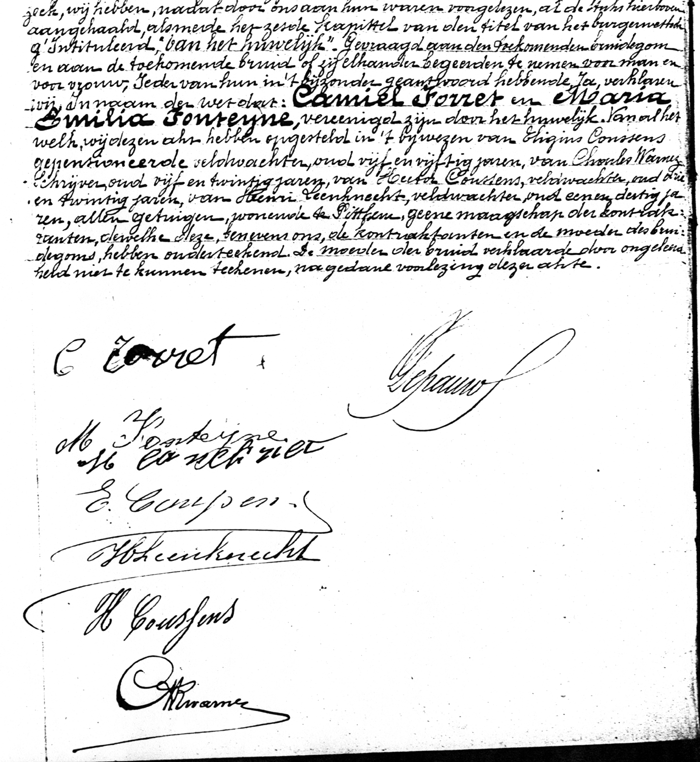 zoek, wij hebben, nadat door ons aan hun waren voorgelezen, al de stuks hierboven
aangehaald, alsmede het zesde kapittel van den titel van het burgerwetboek
g'intituleerd, "van het huwelijk". Gevraagd aan den toekomenden bruidegom
en aan de toekomende bruid of zij elkander begeerden te nemen voor man en
voor vrouw, Ieder van hun in 't bijzonder geantwoord hebbende Ja, verklaren
wij, in naam der wet dat: Camiel Torret en Maria
Emilia Fonteyne, vereenigd zijn door het huwelijk. Van al het
welk, wij dezen akt hebben opgesteld in 't bijwezen van Eligius Coussens
gepensioneerde veldwachter, oud vijf en vijftig jaren, van Charles
Schrijver, oud vijf en twintig jaren, van Hector Coussens, veldwachter, oud
en twintig jaren, van Henri veldwachter oud eenen dertig ja
ren, allen getuigen, wonende te Pitthem, geene maagschap der kontrak-
tanten, dewelke deze, tenevens ons, de kontraktanten en de moeder des brui
degoms, hebben onderteekend. De moeder der bruid verklaarde door ongeleerd
heid niet te kunnen teekenen, na gedane voorlezing dezer akte.
C Torret
Depauw
M Fonteijne
M
E. Coussens
H Coussens